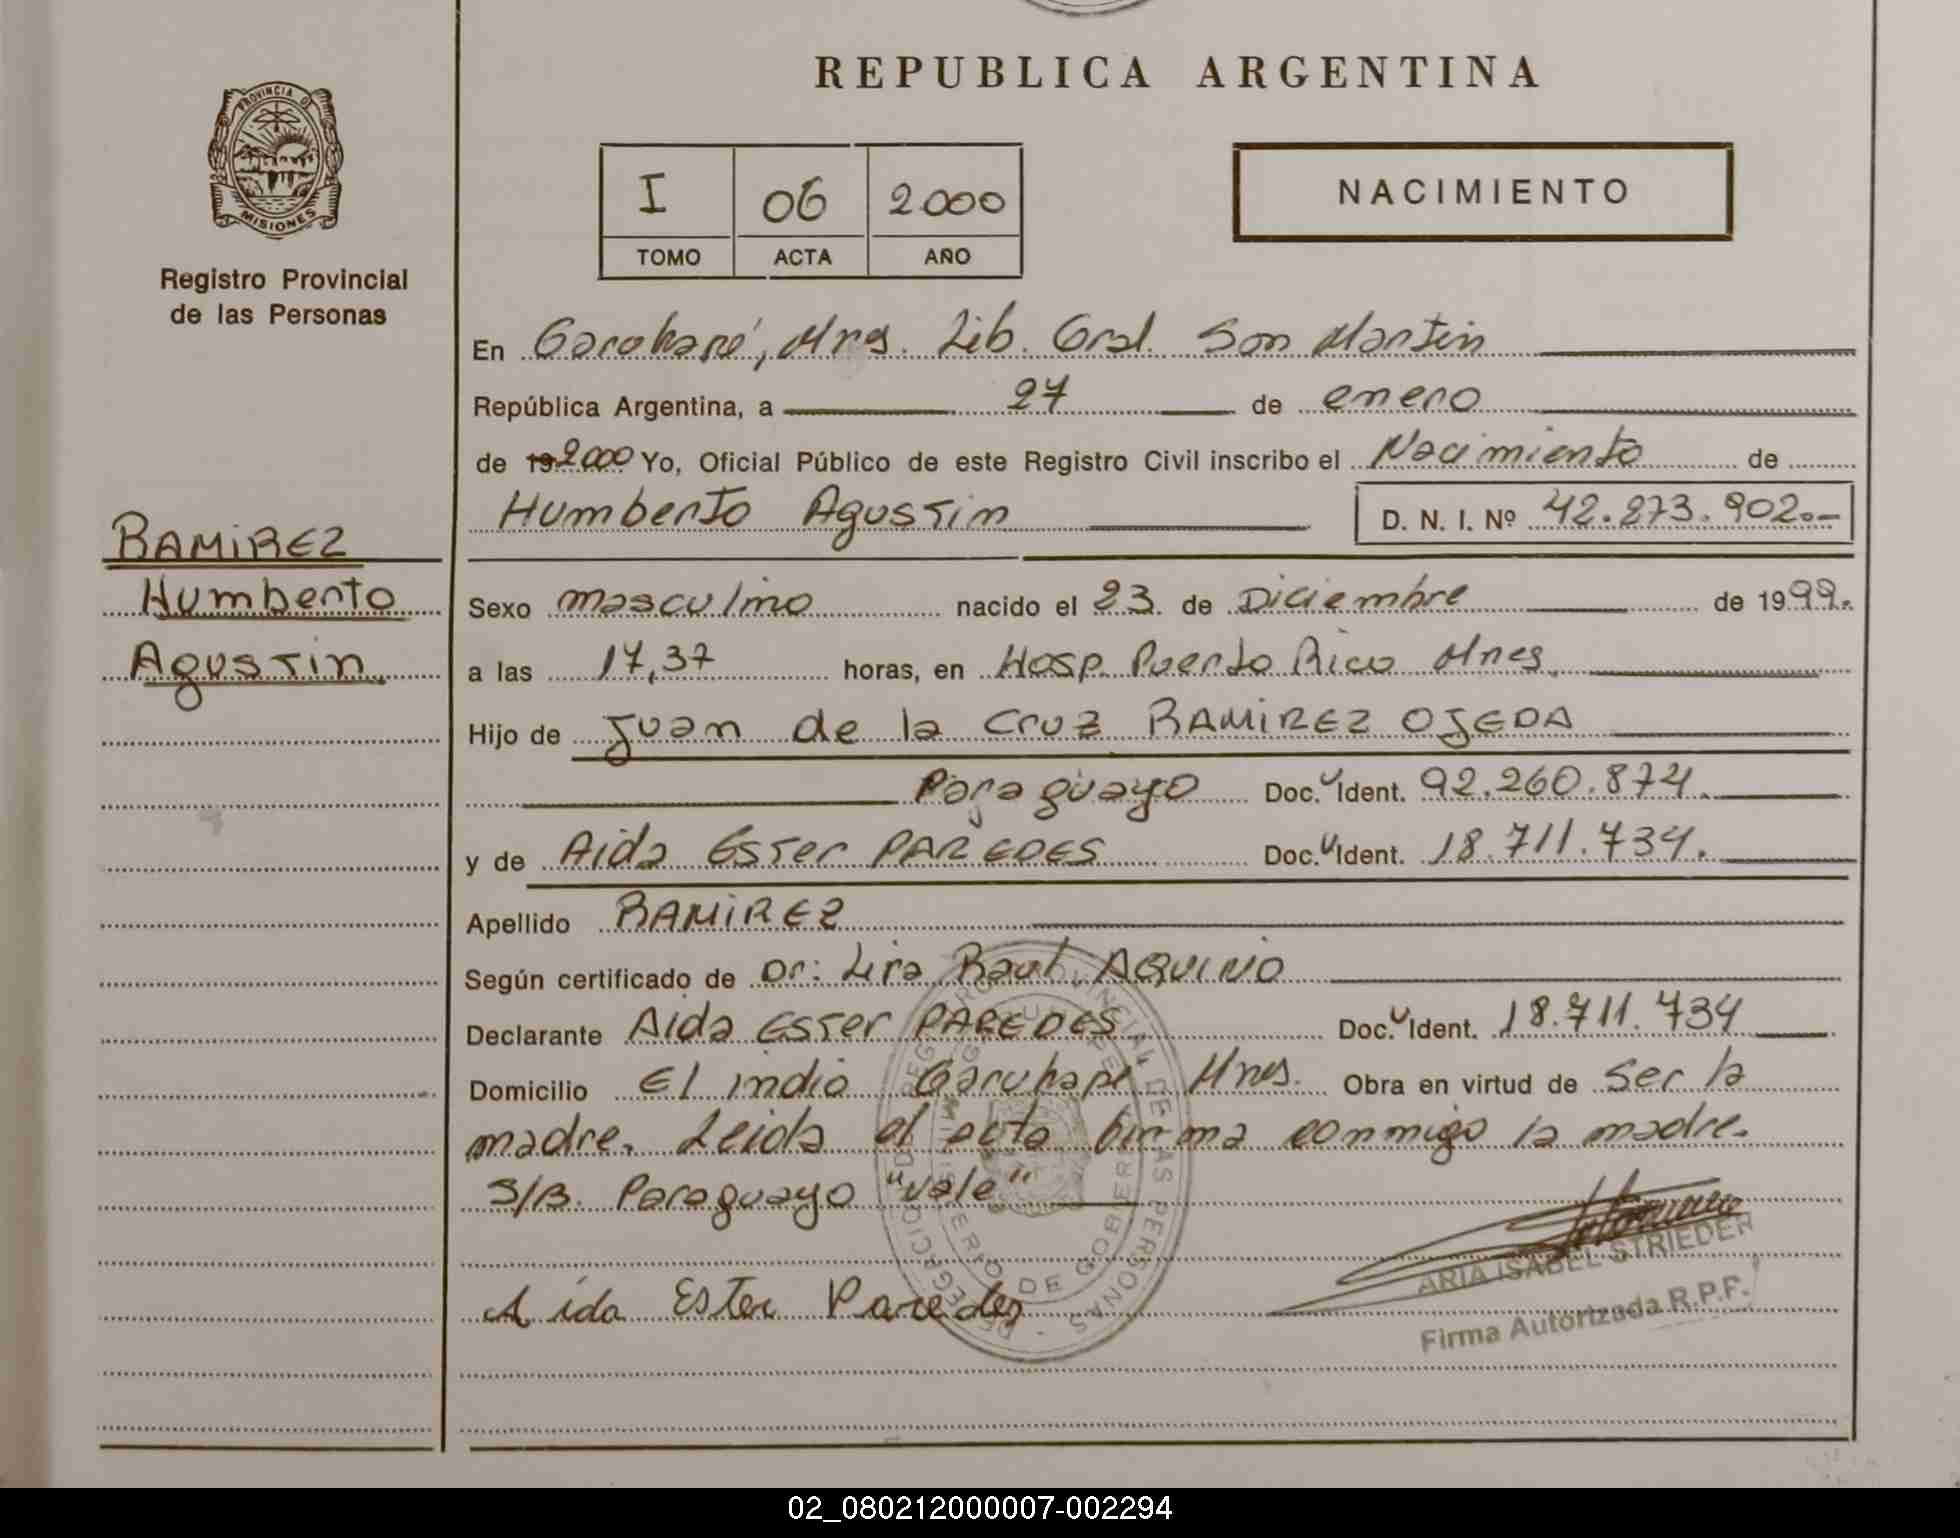 REPUBLICA ARGENTINA
PROVINCIA DE
MISIONES
Registro Provincial
de las Personas
I 06 2000
TOMO ACTA AÑO
NACIMIENTO
En Garuhapé, Mnes. Lib. Gral. San Martin
República Argentina, a 27 de enero
de 19 2000 Yo, Oficial Público de este Registro Civil inscribo el Nacimiento de
Humberto Agustin D. N. I. Nº 42.273.902.-
RAMIREZ
Humberto
Agustin
Sexo masculino nacido el 23. de Diciembre de 1999.
a las 17,37 horas, en Hosp. Puerto Rico Mnes.
Hijo de Juan de la Cruz RAMIREZ OJEDA
Paraguayo Doc. U Ident. 92.260.874.
y de Aida Ester PAREDES Doc. U Ident. 18.711.734.
Apellido RAMIREZ
Según certificado de Dr: Lira Raul AQUINO
Declarante Aida Ester PAREDES Doc. U Ident. 18.711.734
Domicilio El indio Garuhapé Mnes. Obra en virtud de ser la
madre. Leida el acta firma conmigo la madre.
S/B. Paraguayo "vale"
Aida Ester Paredes
ARIA ISABEL STRIEDER
Firma Autorizada R.P.F.
02_080212000007-002294